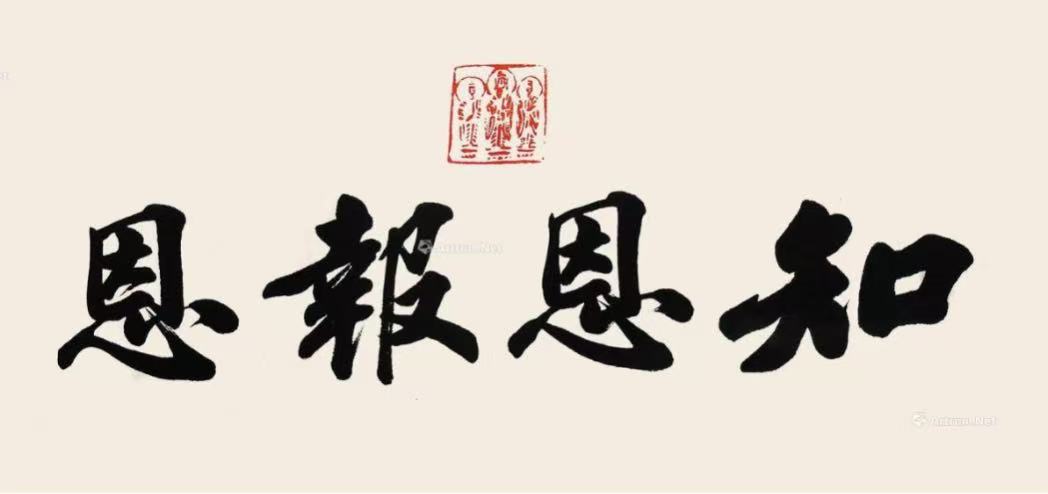 知恩報恩
Artron.Net
Artron.Net